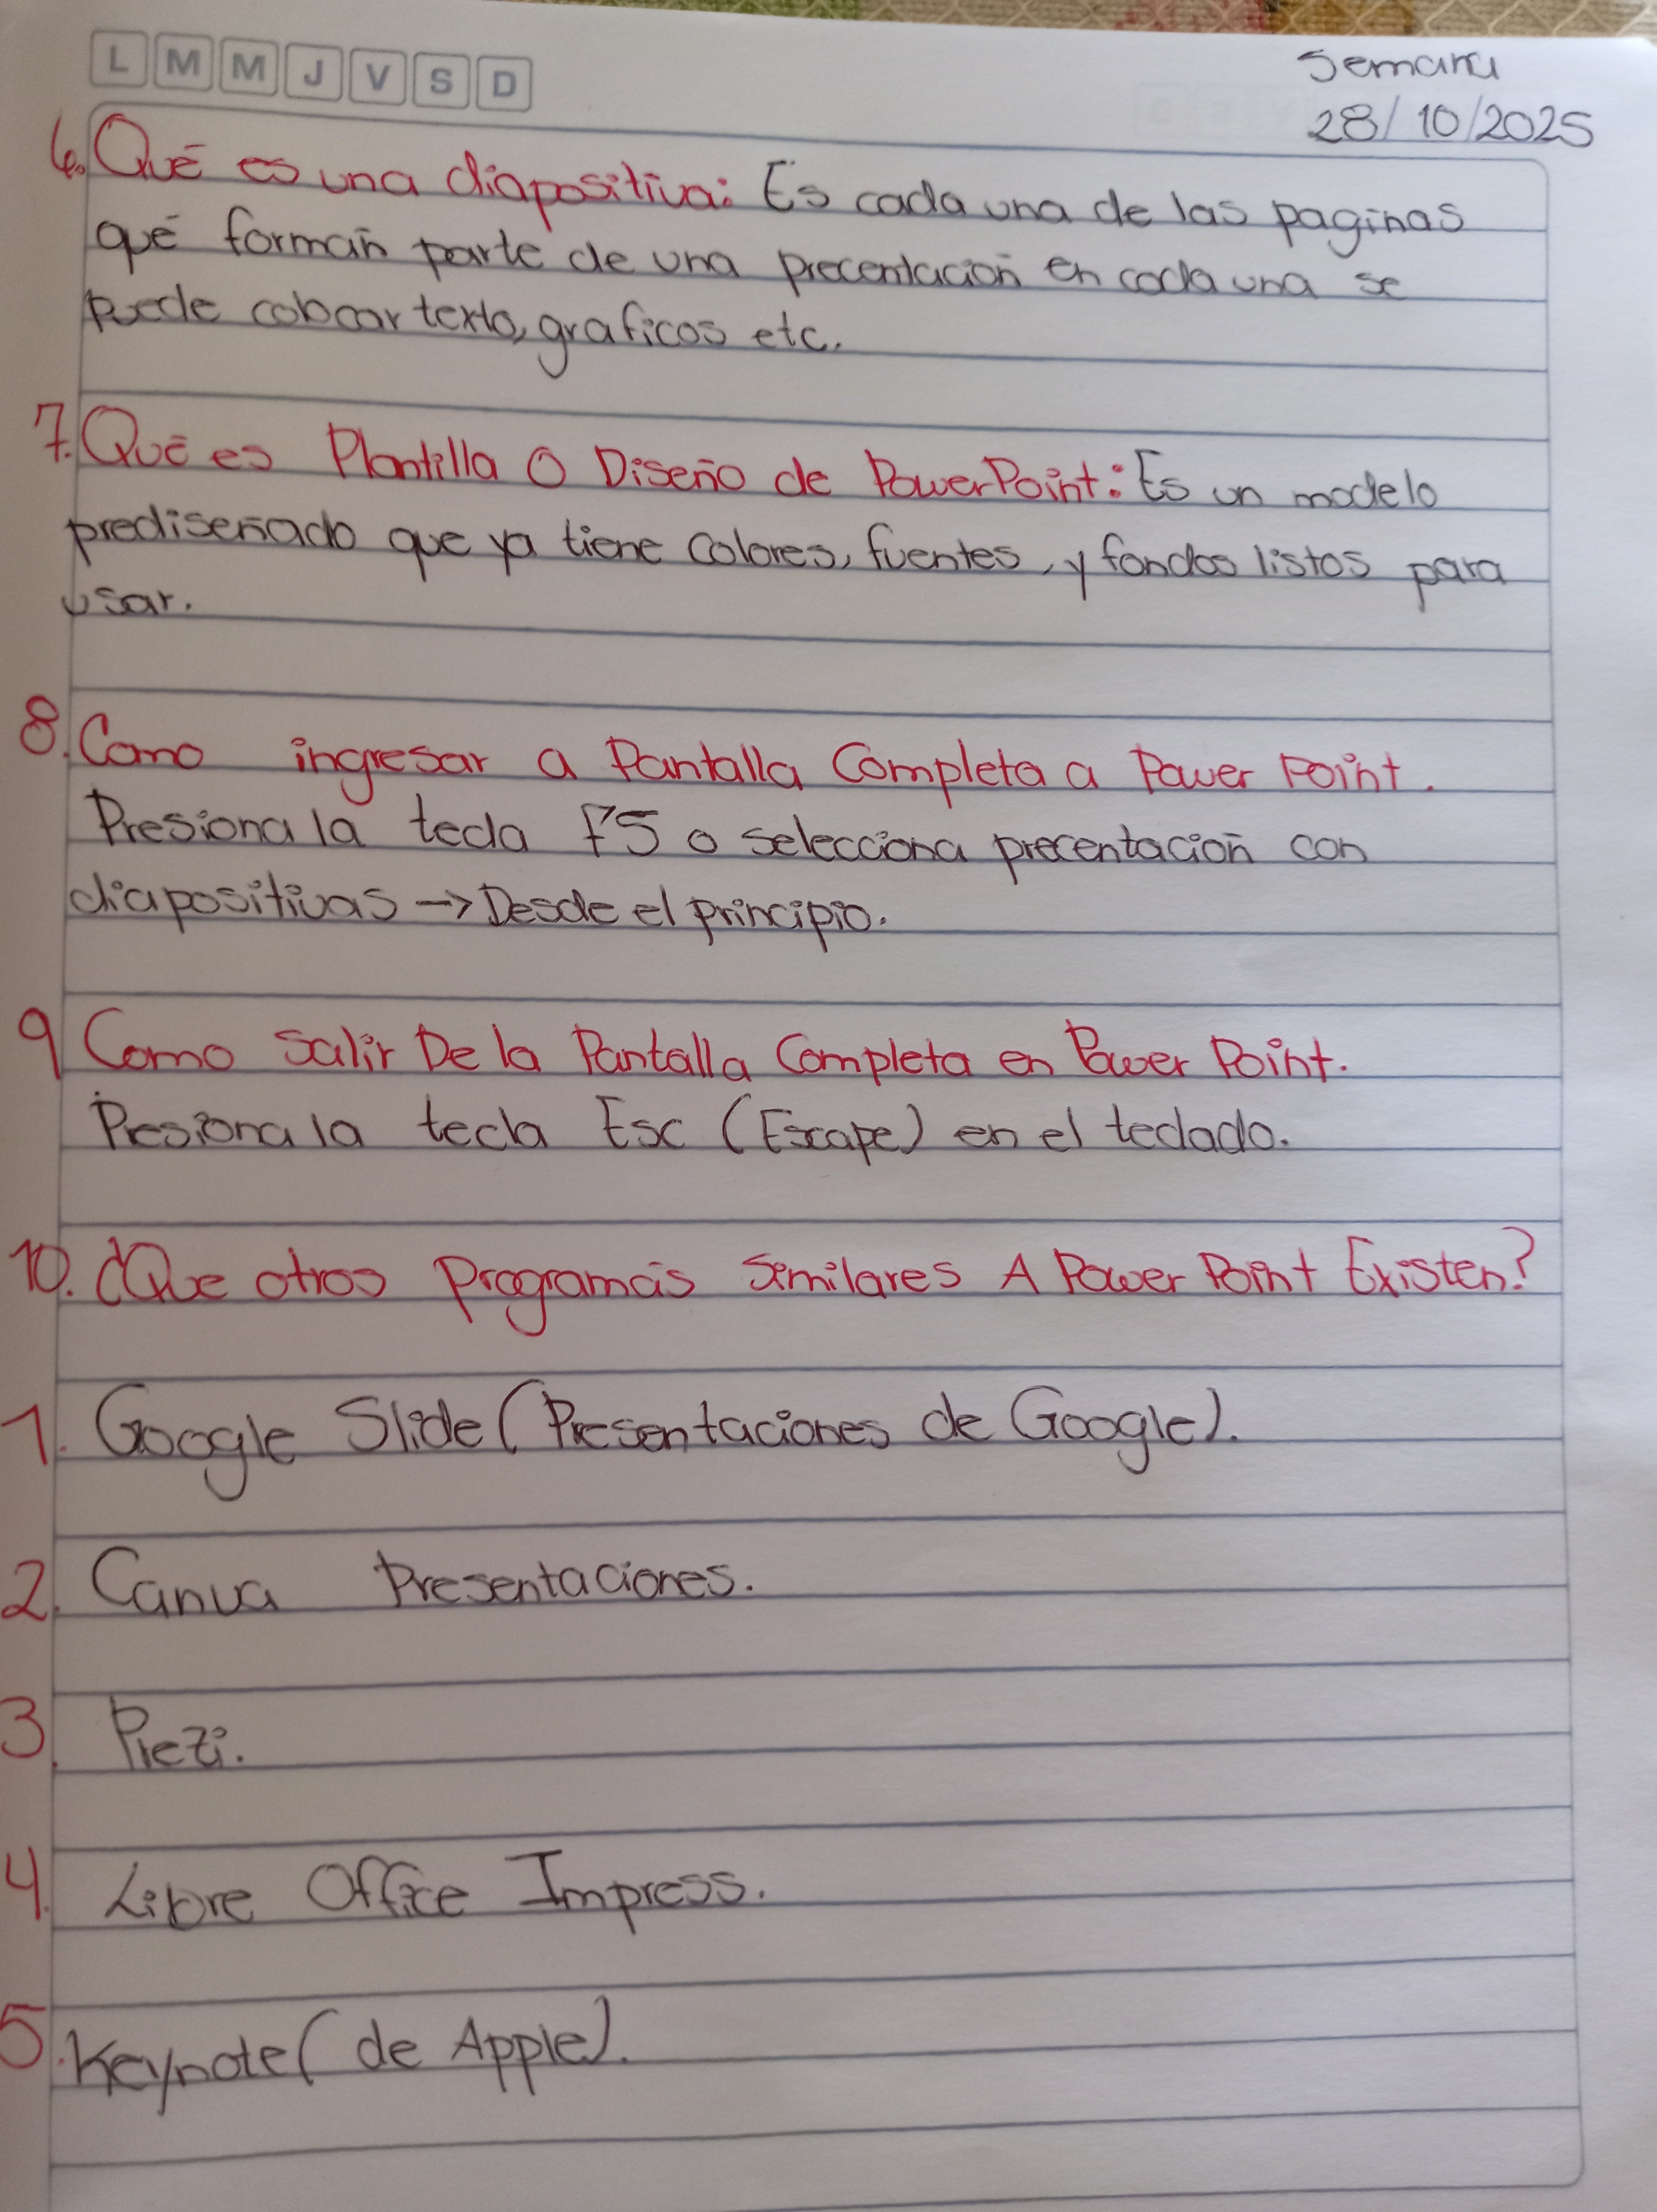 L M M J V S D
Semana
28/10/2025
6. Qué es una diapositiva: Es cada una de las paginas
qué forman parte de una precentación en cada una se
puede colocar texto, graficos etc.
7. Qué es Plantilla O Diseño de PowerPoint: Es un modelo
prediseñado que ya tiene colores, fuentes, y fondos listos para
usar.
8. Como ingresar a Pantalla Completa a Power Point.
Presiona la tecla F5 o selecciona precentación con
diapositivas → Desde el principio.
9 Como Salir De la Pantalla Completa en Power Point.
Presiona la tecla Esc (Escape) en el teclado.
10. ¿Que otros Programas Similares A Power Point Existen?
1. Google Slide (Presentaciones de Google).
2. Canva Presentaciones.
3. Prezi.
4. Libre Office Impress.
5. Keynote (de Apple).